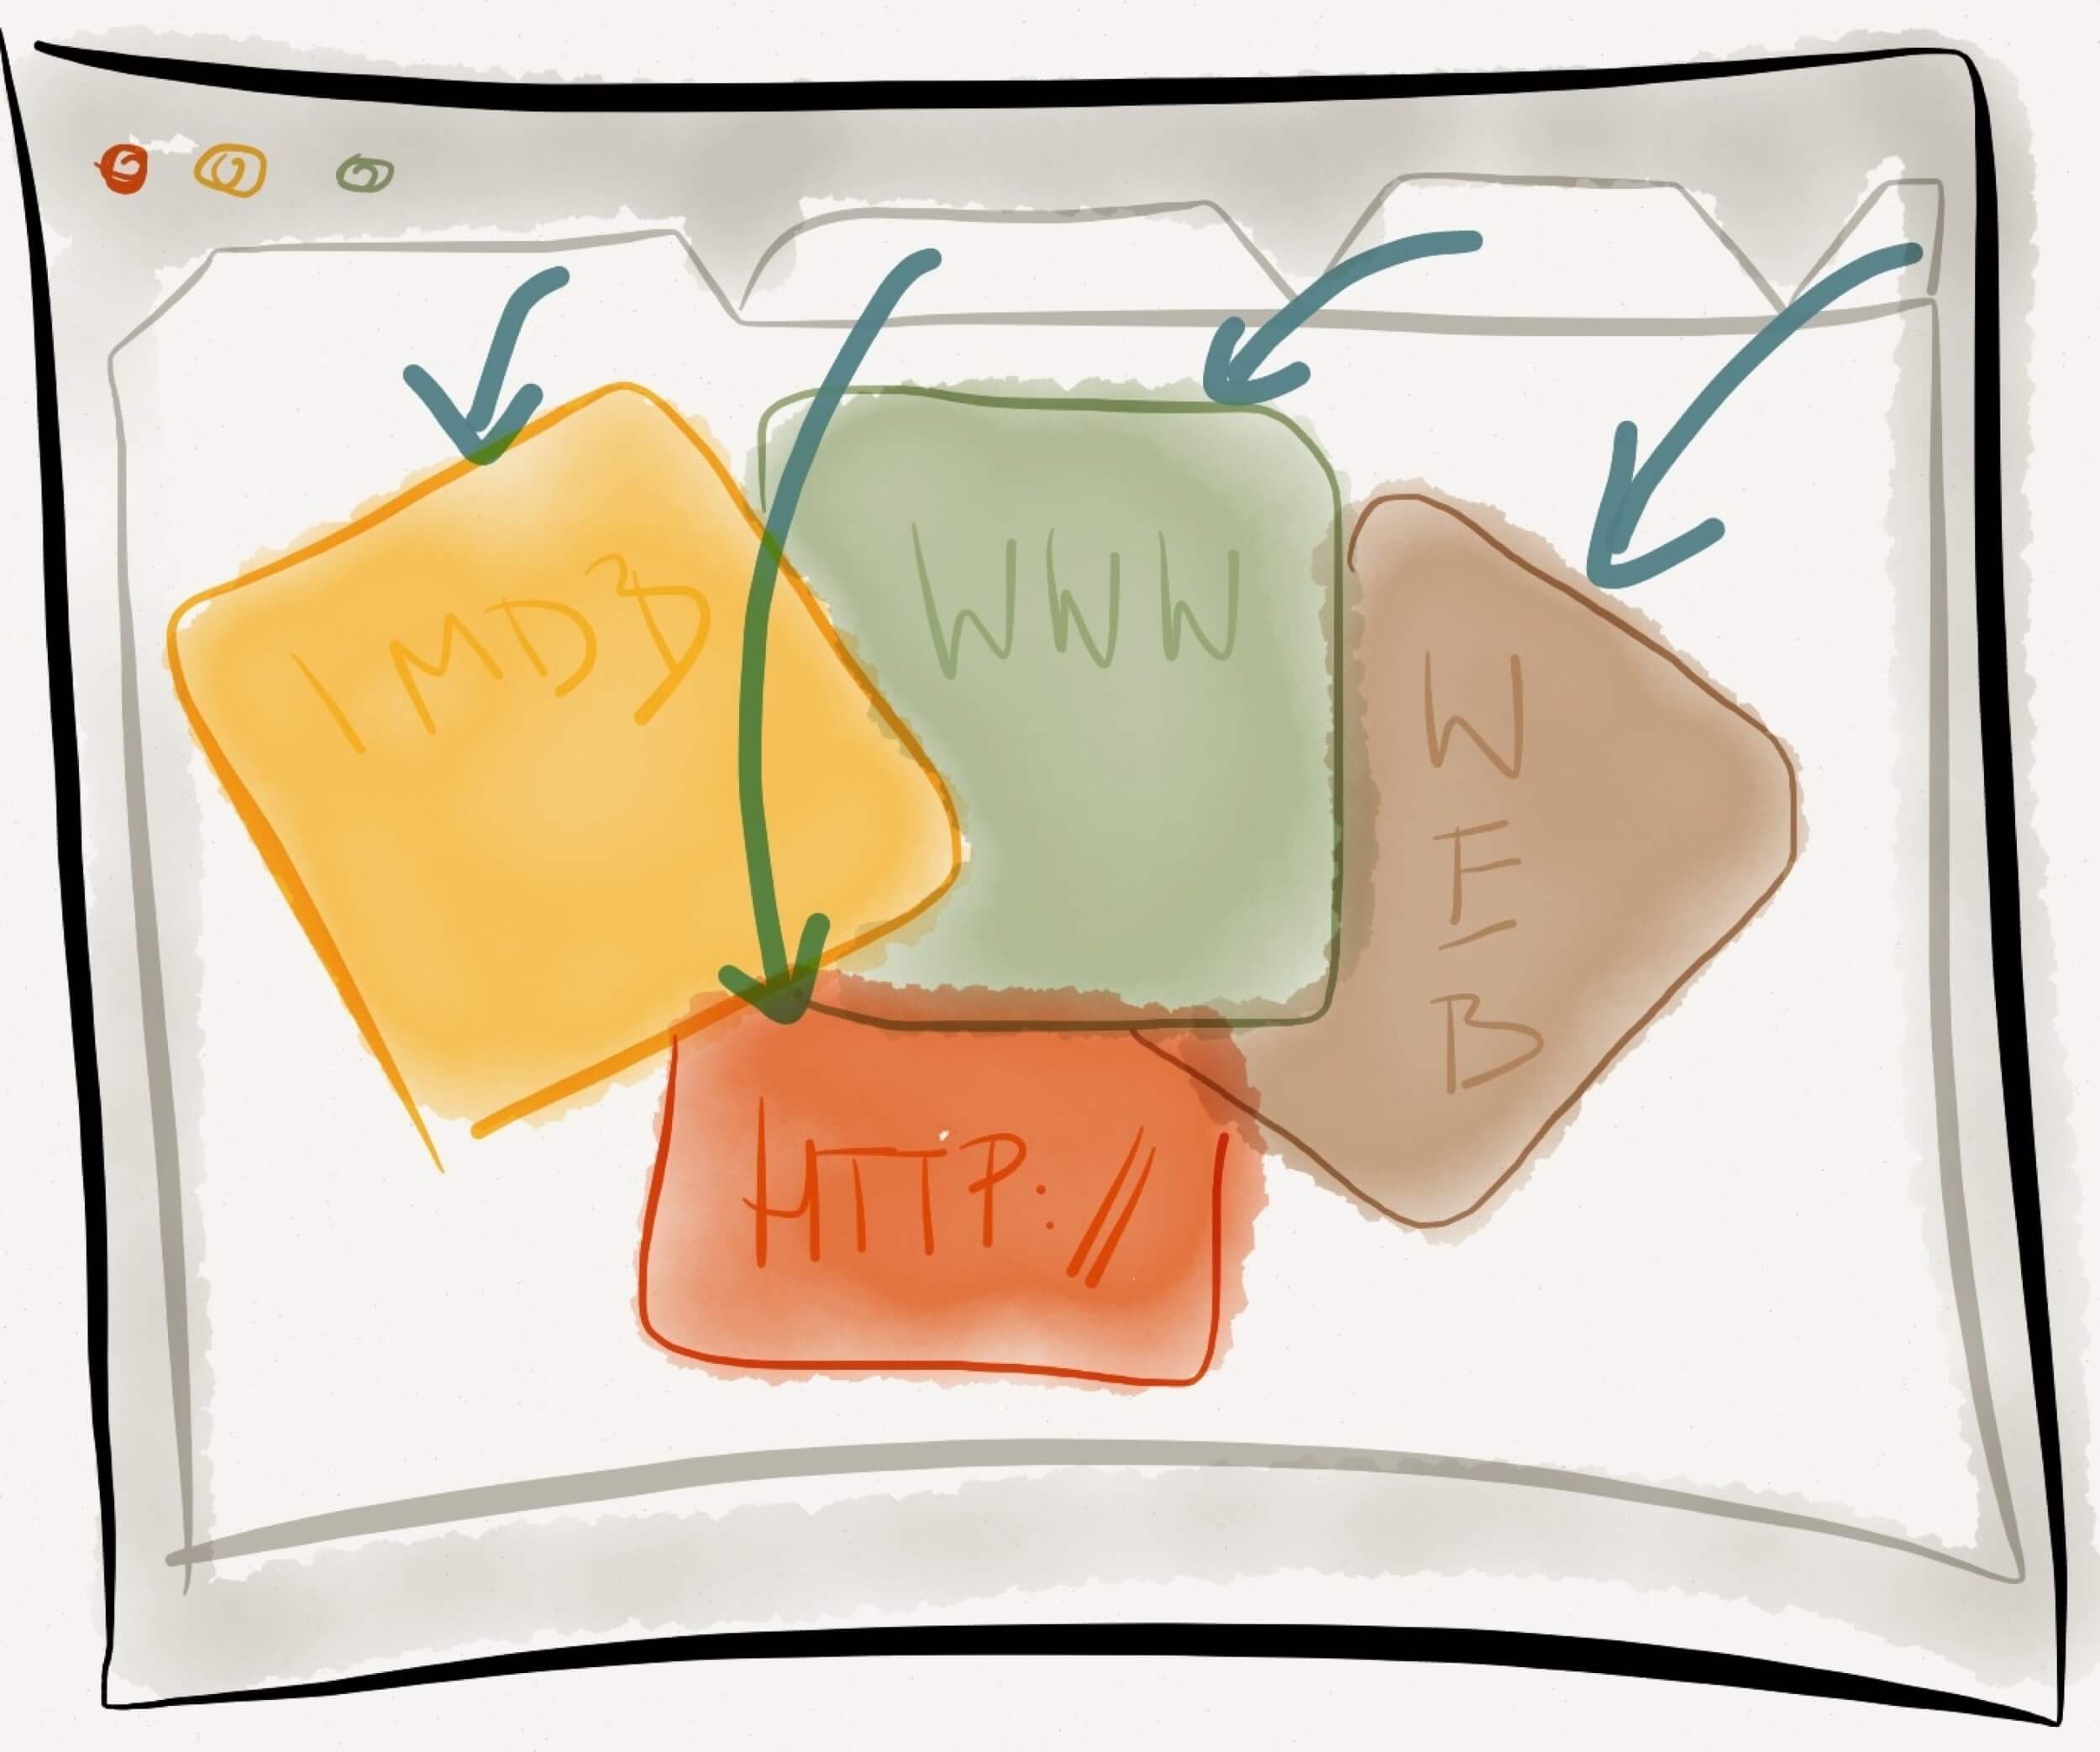 IMDB
WWW
WEB
HTTP://